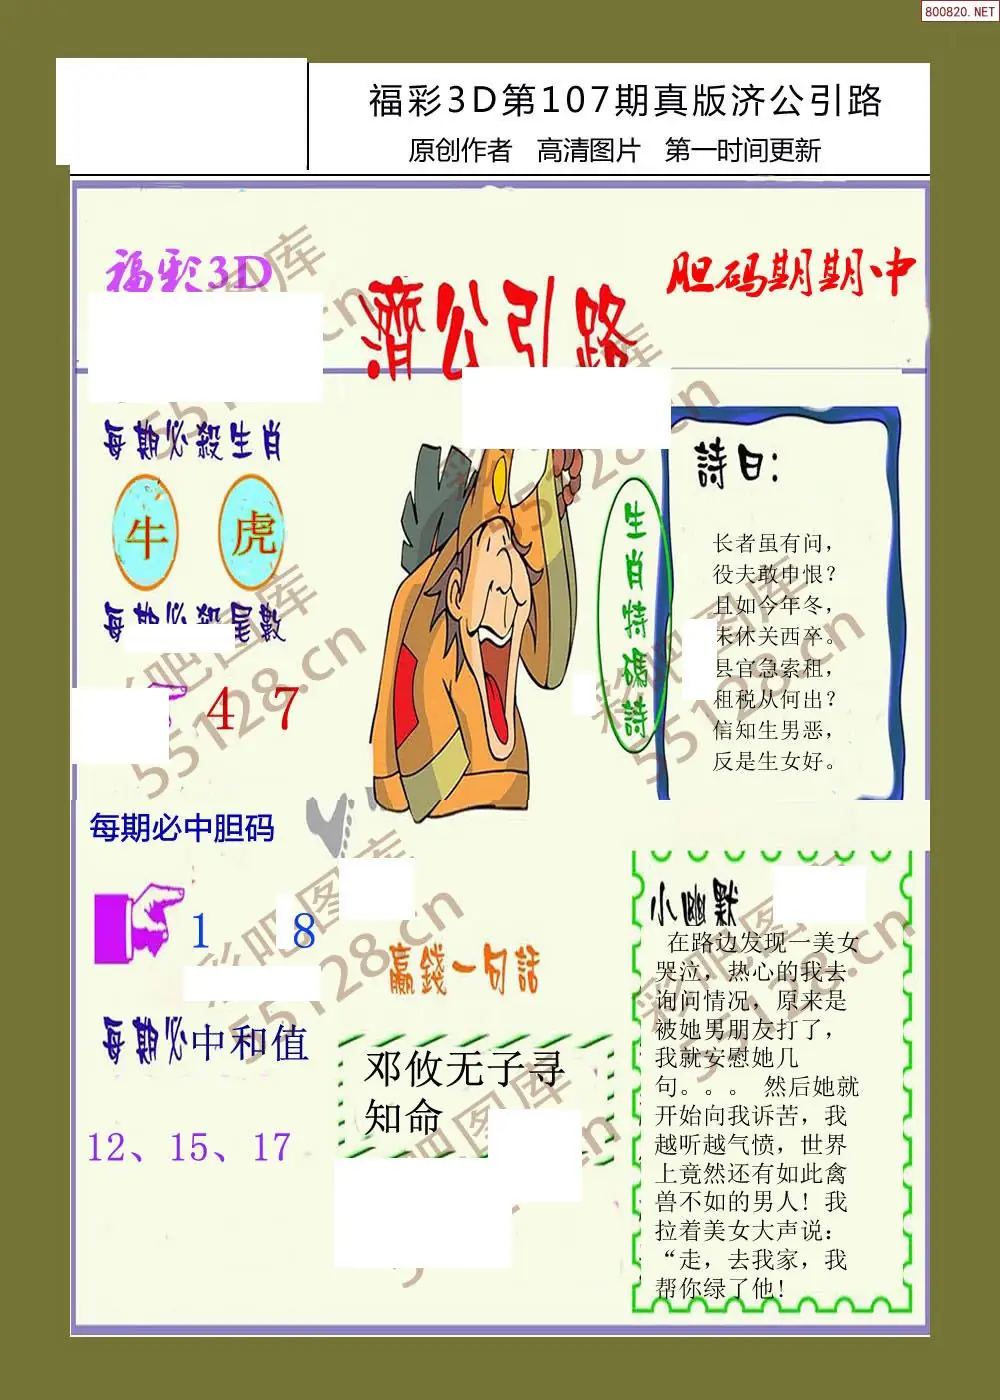 800820.NET
福彩3D第107期真版济公引路
原创作者 高清图片 第一时间更新
福彩3D
濟公引路
胆码期期中
每期必殺生肖
牛 虎
每期必殺尾數
4 7
每期必中胆码
1 8
每期必中和值
12、15、17
生肖特碼詩
詩曰:
长者虽有问，
役夫敢申恨？
且如今年冬，
未休关西卒。
县官急索租，
租税从何出？
信知生男恶，
反是生女好。
赢錢一句話
邓攸无子寻
知命
小幽默
在路边发现一美女
哭泣，热心的我去
询问情况，原来是
被她男朋友打了，
我就安慰她几
句。。。 然后她就
开始向我诉苦，我
越听越气愤，世界
上竟然还有如此禽
兽不如的男人! 我
拉着美女大声说：
“走，去我家，我
帮你绿了他!
彩吧图库
55128.cn
彩吧图库
55128.cn
彩吧图库
55128.cn
彩吧图库
55128.cn